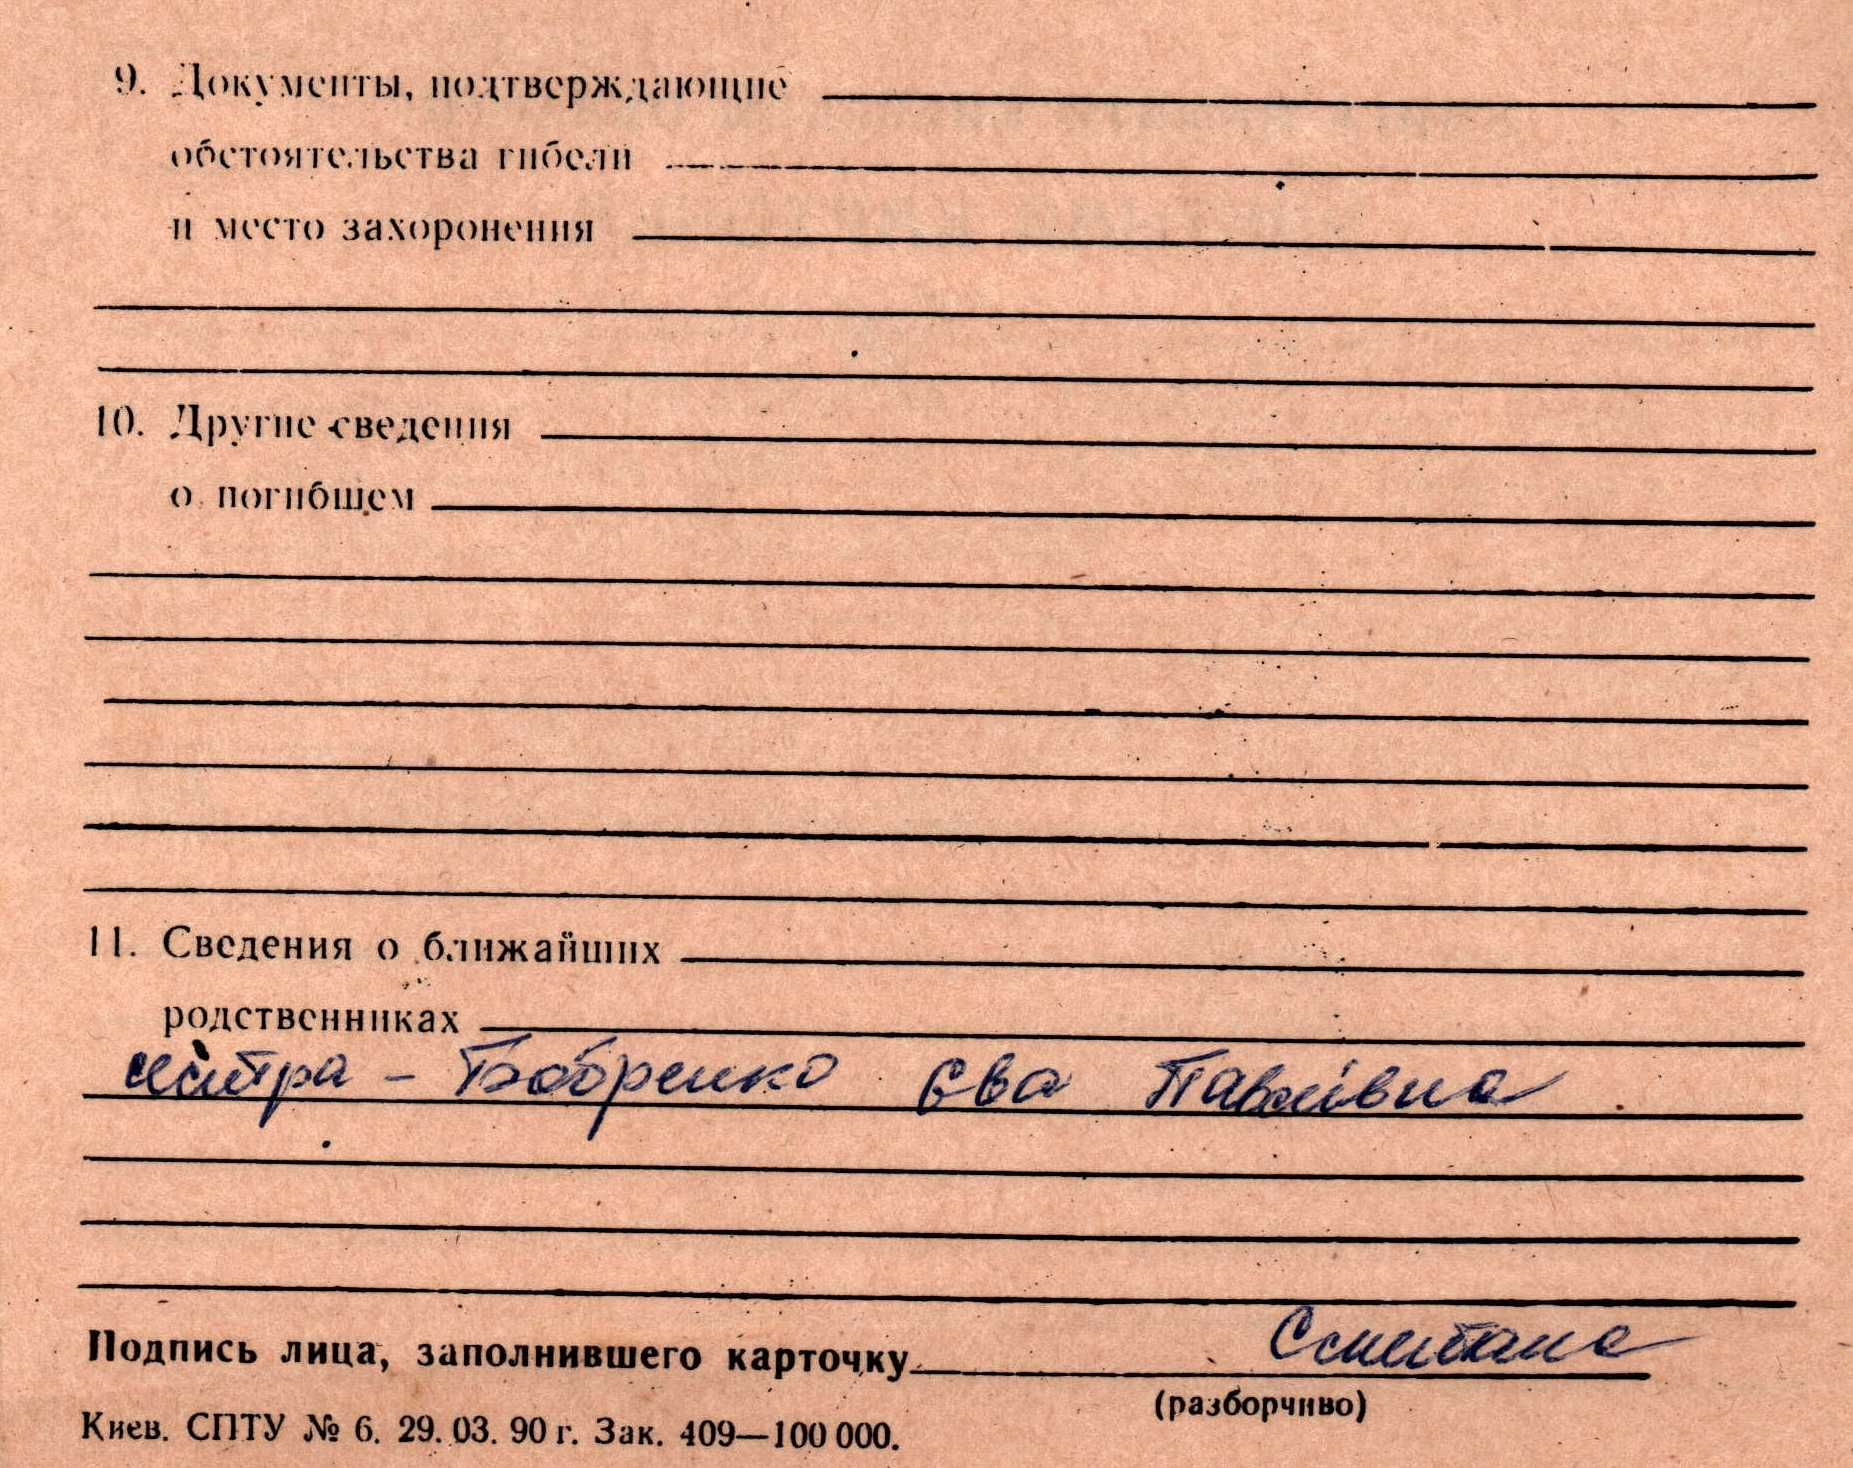 9. Документы, подтверждающие
обстоятельства гибели
и место захоронения
10. Другие сведения
о погибшем
11. Сведения о ближайших
родственниках
сестра - Бобренко Єва Павлівна
Подпись лица, заполнившего карточку Сметана
(разборчиво)
Киев. СПТУ № 6. 29. 03. 90 г. Зак. 409—100 000.